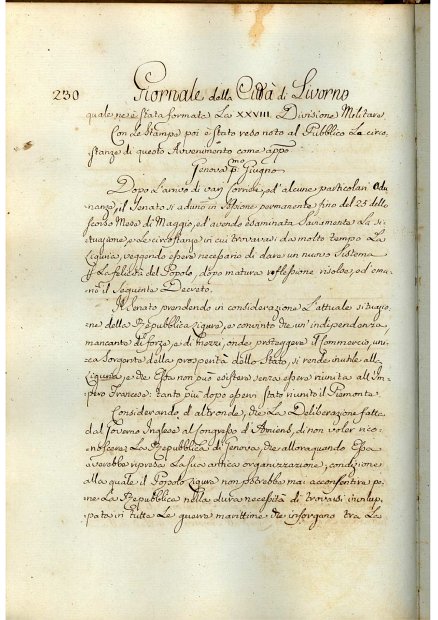 230 Giornale della Città di Livorno
quale ne è stata formata La XXVIII. Divisione Militare
Con le Stampe poi è stato reso noto al Pubblico Le circo,
stanze di questo Avvenimento come app.o
Genova p.mo Giugno
Dopo L'arrivo di varj Corrieri, ed' alcune particolari Adu,
nanze, il Senato si adunò in Sessione permanente fino del 25 dello
scorso Mese di Maggio, ed' avendo esaminata La si,
tuazione, e le circostanze in cui trovavasi da molto tempo La
Liguria, veggendo essere necessario di dare un nuovo Sistema
p La felicità del Popolo, dopo matura riflessione risolse, ed ema,
nò il seguente Decreto.
Il Senato prendendo in considerazione L'attuale situazio,
ne della Repubblica Ligure, e convinto che un' independenza
mancante di forze, e di mezzi, onde proteggere il Commercio uni,
ca Sorgente della prosperità dello Stato, si rende inutile alla
Liguria, e che Essa non può esistere senza essere riunita all' Im,
pero Francese: tanto più dopo essere stato riunito il Piemonte.
Considerando, d' altronde, che La Deliberazione fatta
dal Governo Inglese al Congresso d' Amiens, di non voler rico,
noscere La Repubblica di Genova, che allora quando Essa
averebbe ripresa La sua antica organizzazione, condizione
alla quale il Popolo Ligure non potrebbe mai acconsentire, po,
ne La Repubblica nella dura necessità di trovarsi invilup,
pata in tutte Le guerre marittime che insorgano tra La